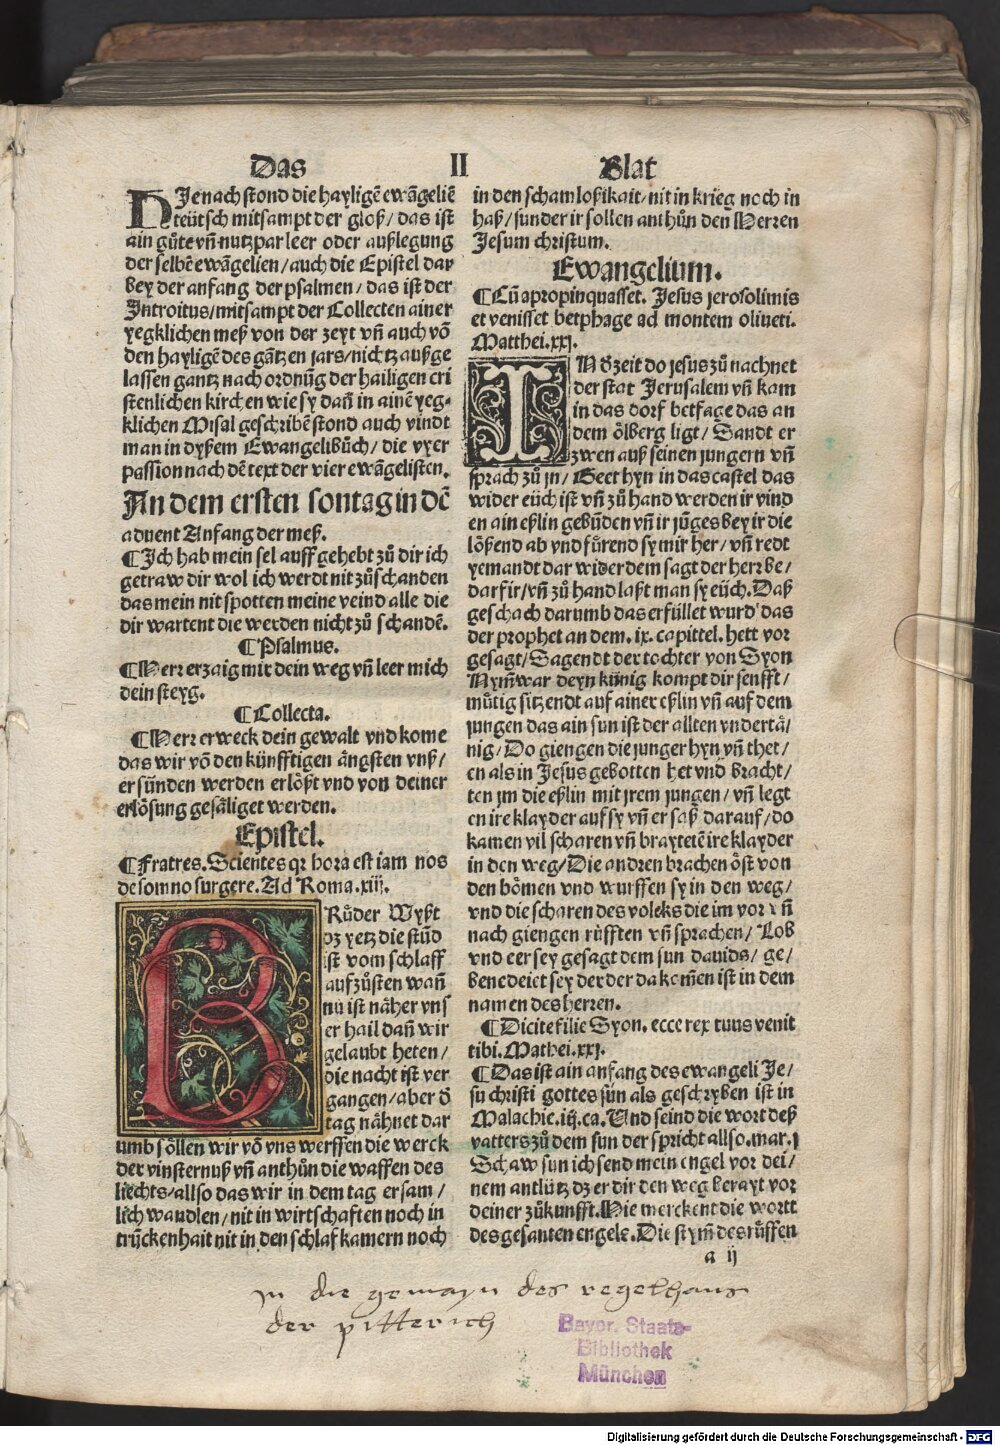 Das II Blat
DJe nach stond die hayligē ewāgeliē
teütsch mitsampt der gloß/ das ist
ain gůte vn̄ nutzpar leer oder außlegung
der selbē ewāgelien/ auch die Epistel dar
bey der anfang der psalmen/ das ist der
Introitus/ mitsampt der Collecten ainer
yegklichen meß von der zeyt vn̄ auch vō
den hayligē des gātzen jars/ nichtz außge
lassen gantz nach ordnūg der hailigen cri
stenlichen kirchen wie sy dan̄ in ainē yeg⸗
klichen Misal geschribē stond auch vindt
man in dysem Ewangelibůch/ die vyer
passion nach dē text der vier ewāgelisten.
An dem ersten sontag in dē
aduent Anfang der meß.
¶Ich hab mein sel auff gehebt zů dir ich
getraw dir wol ich werdt nit zůschanden
das mein nit spotten meine veind alle die
dir wartent die werden nicht zů schandē.
¶Psalmus.
¶Herr erzaig mir dein weg vn̄ leer mich
dein steyg.
¶Collecta.
¶Herr erweck dein gewalt vnd kome
das wir vō den künfftigen ängsten vnß/
er sünden werden erlößt vnd von deiner
erlösung gesäliget werden.
Epistel.
¶Fratres. Scientes qr hora est iam nos
de somno surgere. Ad Roma. xiij.
BRůder Wyßt
dz yetz die stūd
ist vom schlaff
auf zůsten wan̄
nu ist näher vns
er hail dan̄ wir
gelaubt heten/
die nacht ist ver
gangen/ aber d̄
tag nähnet dar
umb söllen wir vō vns werffen die werck
der vinsternuß vn̄ anthůn die waffen des
liechts/ allso das wir in dem tag ersam/
lich wandlen/ nit in wirtschaften noch in
trückenhait nit in den schlafkamern noch
in den schamloßikait/ nit in krieg noch in
haß/ sunder ir sollen anthůn den Herren
Jesum christum.
Ewangelium.
¶Cū apropinquasset. Jesus jerosolimis
et venisset betphage ad montem oliueti.
Matthei. xxj.
IN d̄ zeit do jesus zů nachnet
der stat Jerusalem vn̄ kam
in das dorf betfage das an
dem ölberg ligt/ Sandt er
zwen auß seinen jungern vn̄
sprach zů jn/ Geet hyn in das castel das
wider eüch ist vn̄ zů hand werden ir vind
en ain eßlin gebūden vn̄ ir jūges bey ir die
lößend ab vnd fůrend sy mir her/ vn̄ redt
yemandt dar wider dem sagt der herr be/
darf ir/ vn̄ zů hand laßt man sy eüch. Daß
geschach darumb das erfüllet wurd' das
der prophet an dem. ix. capittel. hett vor
gesagt/ Sagendt der tochter von Syon
Nym̄ war deyn künig kompt dir senfft/
můtig sitzendt auf ainer eßlin vn̄ auf dem
jungen das ain sun ist der allten vndertä/
nig/ Do giengen die junger hyn vn̄ thet/
en als in Jesus gebotten het vnd bracht/
ten jm die eßlin mit jrem jungen/ vn̄ legt
en ire klayder auf sy vn̄ er saß darauf/ do
kamen vil scharen vn̄ braytetē ire klayder
in den weg/ Die andren brachen öst von
den bömen vnd wurffen sy in den weg/
vnd die scharen des volcks die im vor vn̄
nach giengen růfften vn̄ sprachen/ Lob
vnd eer sey gesagt dem sun dauids/ ge/
benedeiet sey der der da kom̄en ist in dem
namen des herren.
¶Dicite filie Syon. ecce rex tuus venit
tibi. Mathei. xxj.
¶Das ist ain anfang des ewangeli Je/
su christi gottes sün als geschryben ist in
Malachie. iij. ca. Und seind die wort deß
vatters zů dem sun der spricht allso. mar. j
Schaw sun ich send mein engel vor dei/
nem antlütz dz er dir den weg berayt vor
deiner zůkunfft. Hie merckent die wortt
des gesanten engels. Die stym̄ des růffen
a ij
In die gemayn des regelhaus
der pitterich
Bayer. Staats-
Bibliothek
München
Digitalisierung gefördert durch die Deutsche Forschungsgemeinschaft - DFG